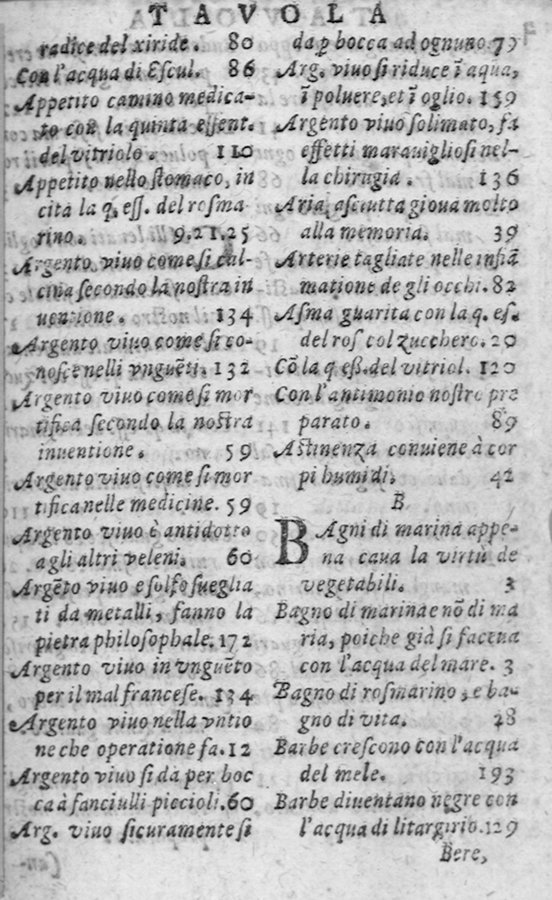 TAVOLA
radice del xiride. 80
Con l'acqua di Escul. 86
Appetito camino medica-
to con la quinta essent.
del vitriolo. 110
Appetito nello stomaco, in
cita la q. ess. del rosma
rino. 9.21.25
Argento vivo come si cal-
cina secondo la nostra in
uentione. 134
Argento vivo come si co-
nosce nelli vnguẽti. 132
Argento vivo come si mor
tifica secondo la nostra
inuentione. 59
Argento vivo come si mor
tifica nelle medicine. 59
Argento vivo è antidotto
agli altri veleni. 60
Argẽto vivo e solfo sueglia
ti da metalli, fanno la
pietra philosophale. 172
Argento vivo in vnguẽto
per il mal francese. 134
Argento vivo nella vntio
ne che operatione fa. 12
Argento vivo si da per boc
ca à fanciulli piccioli. 60
Arg. vivo sicuramente si
da p bocca ad ognuno. 79
Arg. vivo si riduce ĩ aqua,
ĩ poluere, et ĩ oglio. 159
Argento vivo solimato, fa
effetti marauigliosi nel-
la chirugia. 136
Aria asciutta gioua molto
alla memoria. 39
Arterie tagliate nelle infiã
matione de gli occhi. 82
Asma guarita con la q. es.
del ros col zucchero. 20
Cõ la q. ess. del vitriol. 120
Con l'antimonio nostro pre
parato. 89
Astinenza conuiene à cor
pi humidi. 42
B
BAgni di marina appe-
na caua la virtù de
vegetabili. 3
Bagno di marina e nõ di ma
ria, poiche già si faceua
con l'acqua del mare. 3
Bagno di rosmarino, e ba-
gno di vita. 28
Barbe crescono con l'acqua
del mele. 193
Barbe diuentano negre con
l'acqua di litargirio. 129
Bere,